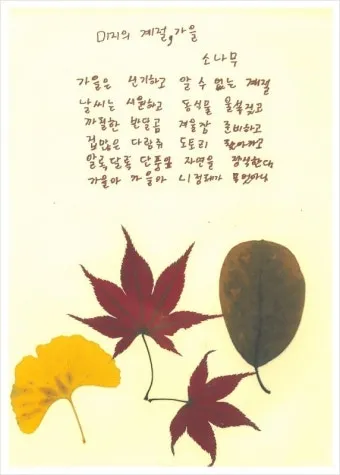 미지의 계절, 가을
소나무
가을은 신기하고 알 수 없는 계절
날씨는 시원하고 동식물 울부짖고
까칠한 반달곰 겨울잠 준비하고
겁많은 다람쥐 도토리 찾아가고
알록달록 단풍잎 자연을 장식한다.
가을아 가을아 니 정체가 무엇이니